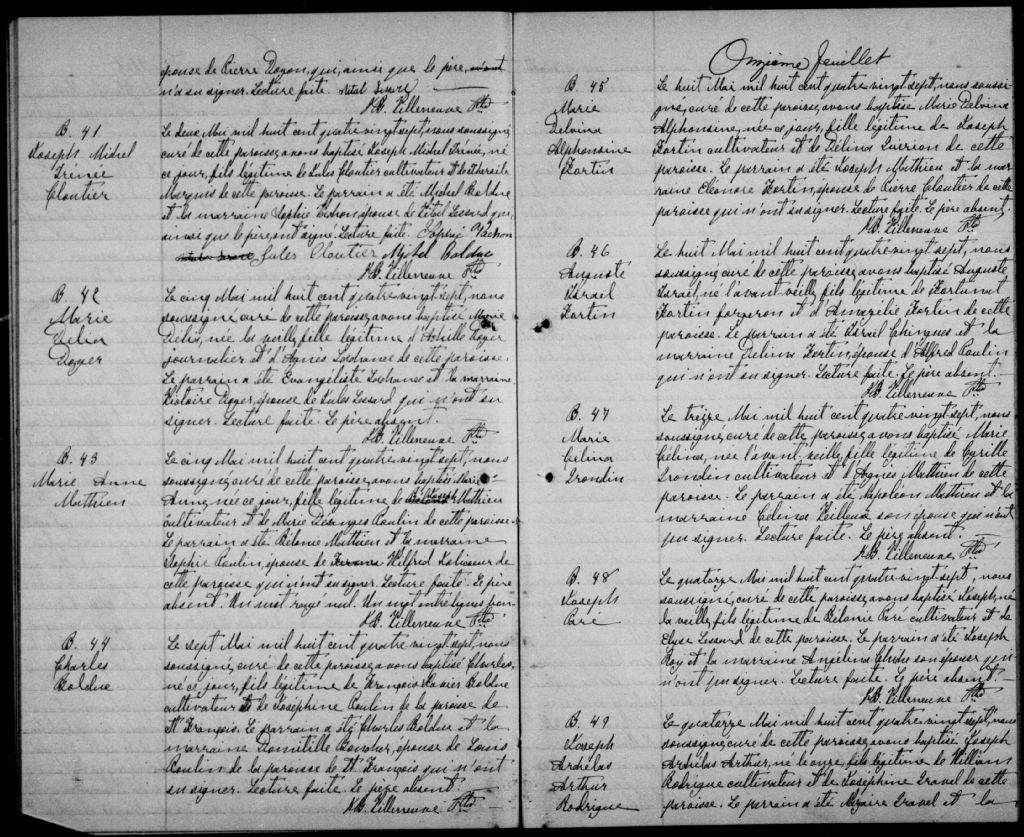 épouse de Pierre Doyon, qui, ainsi que le père, n'ont
n'a su signer. Lecture faite.
J.B. Villeneuve Ptre
B. 41
Joseph Michel
Irenée
Cloutier
Le deux Mai mil huit cent quatre vingt sept, nous soussigné,
curé de cette paroisse, avons baptisé Joseph Michel Irenée, né
ce jour, fils légitime de Jules Cloutier cultivateur et de Tharsile
Marquis de cette paroisse. Le parrain a été Michel Bolduc
et la marraine Sophie Vachon, épouse de Vital Lessard qui,
ainsi que le père, ont signé. Lecture faite. Sophie Vachon
Jules Cloutier Michel Bolduc
J.B. Villeneuve Ptre
B. 42
Marie
Délia
Doyer
Le cinq Mai mil huit cent quatre vingt sept, nous
soussigné curé de cette paroisse, avons baptisé Marie
Délia, née la veille, fille légitime d'Achille Doyer
journalier et d'Agnès Lachance de cette paroisse.
Le parrain a été Evangéliste Lachance et la marraine
Victoire Doyer, épouse de Jules Lessard qui n'ont su
signer. Lecture faite. Le père absent.
J.B. Villeneuve Ptre
B. 43
Marie Anne
Mathieu
Le cinq Mai mil huit cent quatre vingt sept, nous
soussigné, curé de cette paroisse, avons baptisé Marie
Anne, née ce jour, fille légitime de Joseph Mathieu
cultivateur et de Marie Desanges Poulin de cette paroisse.
Le parrain a été Bélonie Mathieu et la marraine
Sophie Poulin, épouse de Wilfred Jolicoeur de
cette paroisse qui n'ont su signer. Lecture faite. Le père
absent. Un mot rayé nul. Un mot entre lignes bon.
J.B. Villeneuve Ptre
B. 44
Charles
Bolduc
Le sept Mai mil huit cent quatre vingt sept, nous
soussigné, curé de cette paroisse, avons baptisé Charles,
né ce jour, fils légitime de François Xavier Bolduc
cultivateur et de Joséphine Poulin de la paroisse de
St François. Le parrain a été Charles Bolduc et la
marraine Domitille Boucher, épouse de Louis
Poulin de la paroisse de St François qui n'ont
su signer. Lecture faite. Le père absent.
J.B. Villeneuve Ptre
Onzième feuillet
B. 45
Marie
Delvina
Alphonsine
Fortin
Le huit Mai mil huit cent quatre vingt sept, nous soussi
gné, curé de cette paroisse, avons baptisé Marie Delvina
Alphonsine, née ce jour, fille légitime de Joseph
Fortin cultivateur et de Délina Guerion de cette
paroisse. Le parrain a été Joseph Mathieu et la mar
raine Eléonore Fortin, épouse de Pierre Cloutier de cette
paroisse qui n'ont su signer. Lecture faite. Le père absent.
J.B. Villeneuve Ptre
B. 46
Auguste
Israël
Fortin
Le huit Mai mil huit cent quatre vingt sept, nous
soussigné, curé de cette paroisse, avons baptisé Auguste
Israël, né l'avant veille, fils légitime de Fortunat
Fortin forgeron et d'Amazélie Fortin de cette
paroisse. Le parrain a été Israël et la
marraine Délina Fortin, épouse d'Alfred Poulin
qui n'ont su signer. Lecture faite. Le père absent.
J.B. Villeneuve Ptre
B. 47
Marie
Célina
Grondin
Le treize Mai mil huit cent quatre vingt sept, nous
soussigné, curé de cette paroisse, avons baptisé Marie
Célina, née l'avant veille, fille légitime de Cyrille
Grondin cultivateur et d'Agnès Mathieu de cette
paroisse. Le parrain a été Napoléon Mathieu et la
marraine Célina Veilleux son épouse qui n'ont
su signer. Lecture faite. Le père absent.
J.B. Villeneuve Ptre
B. 48
Joseph
Paré
Le quatorze Mai mil huit cent quatre vingt sept, nous
soussigné, curé de cette paroisse, avons baptisé Joseph, né
la veille, fils légitime de Bélonie Paré cultivateur et de
Elyse Lessard de cette paroisse. Le parrain a été Joseph
Roy et la marraine Angélina son épouse qui
n'ont su signer. Lecture faite. Le père absent.
J.B. Villeneuve Ptre
B. 49
Joseph
Archélas
Arthur
Rodrigue
Le quatorze Mai mil huit cent quatre vingt sept, nous
soussigné, curé de cette paroisse, avons baptisé Joseph
Archélas Arthur, né le onze, fils légitime de William
Rodrigue cultivateur et de Joséphine Gravel de cette
paroisse. Le parrain a été Nazaire Gravel et la